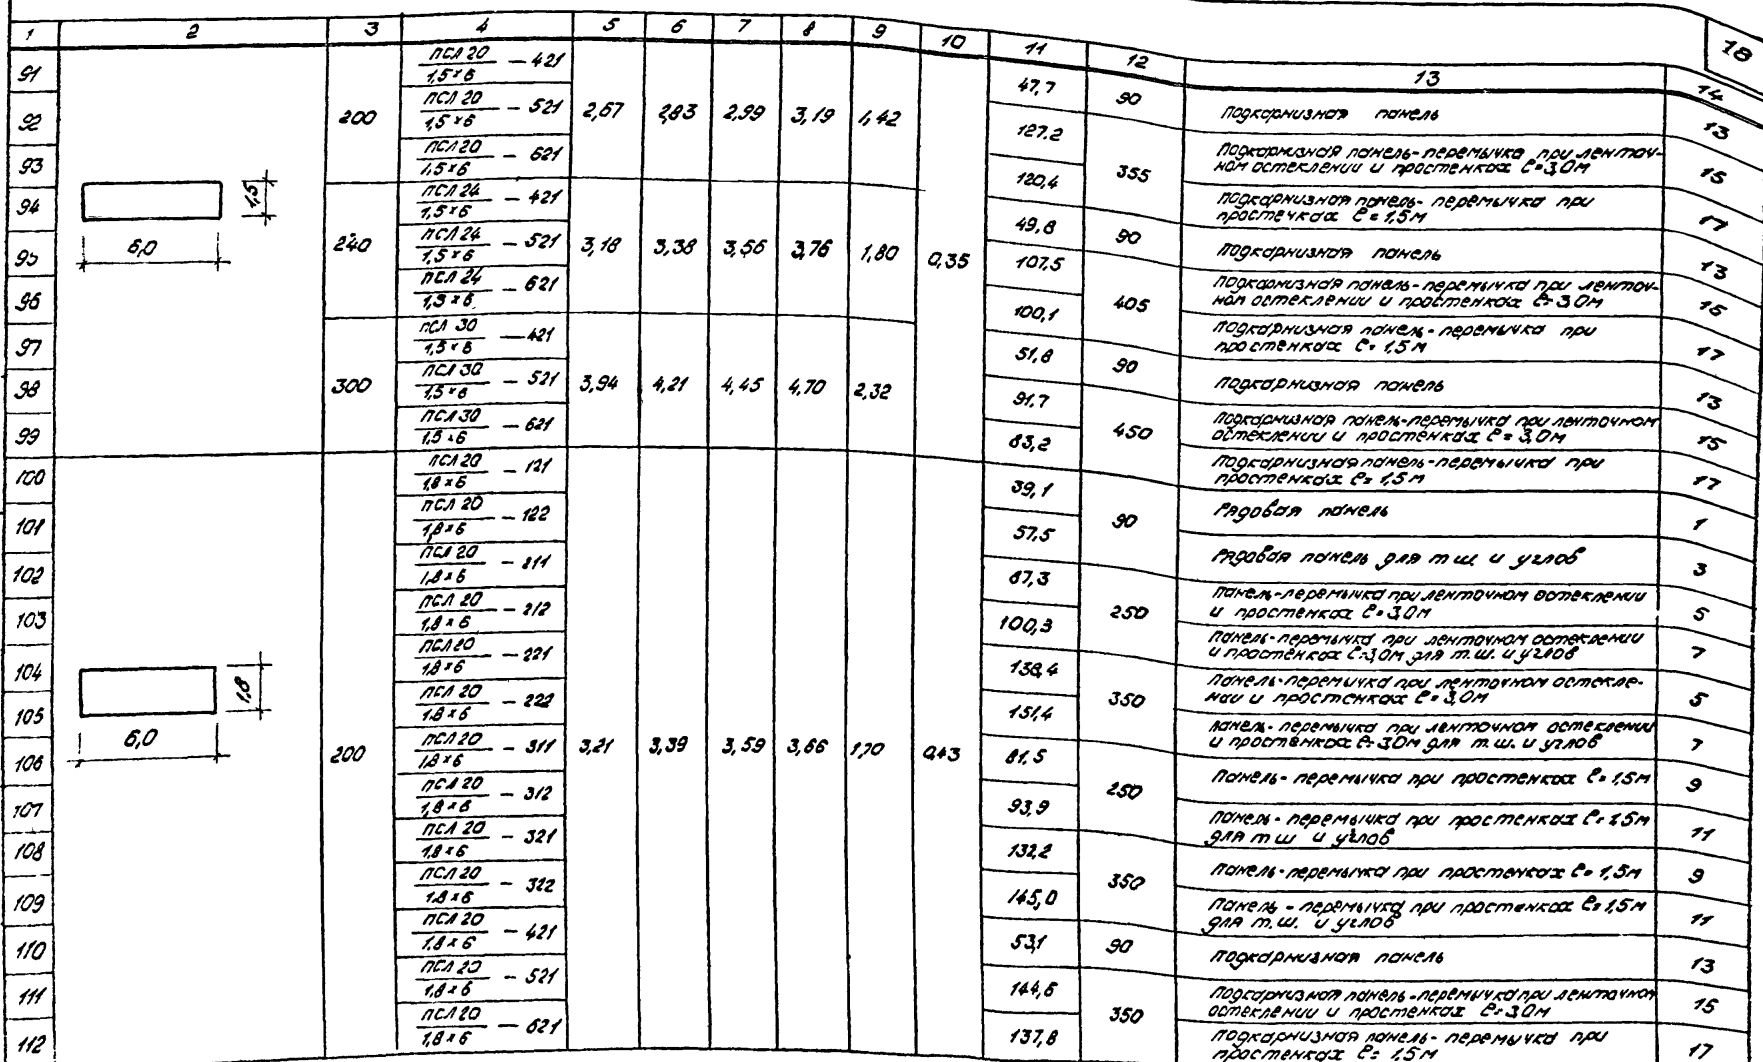 18
1 2 3 4 5 6 7 8 9 10 11 12 13 14
91 ПСЛ 20 / 1,5×6 – 421 47,7 90 Подкарнизная панель 13
92 200 ПСЛ 20 / 1,5×6 – 521 2,67 2,83 2,99 3,19 1,42 127,2 355 Подкарнизная панель-перемычка при ленточ-
ном остеклении и простенках ℓ=3,0м 15
93 ПСЛ 20 / 1,5×6 – 621 120,4 Подкарнизная панель-перемычка при
простенках ℓ=1,5м 17
1,5
6,0
94 ПСЛ 24 / 1,5×6 – 421 49,8 90 Подкарнизная панель 13
95 240 ПСЛ 24 / 1,5×6 – 521 3,18 3,38 3,56 3,76 1,80 0,35 107,5 405 Подкарнизная панель-перемычка при ленточ-
ном остеклении и простенках ℓ=3,0м 15
96 ПСЛ 24 / 1,5×6 – 621 100,1 Подкарнизная панель-перемычка при
простенках ℓ=1,5м 17
97 ПСЛ 30 / 1,5×6 – 421 51,8 90 Подкарнизная панель 13
98 300 ПСЛ 30 / 1,5×6 – 521 3,94 4,21 4,45 4,70 2,32 91,7 450 Подкарнизная панель-перемычка при ленточном
остеклении и простенках ℓ=3,0м 15
99 ПСЛ 30 / 1,5×6 – 621 83,2 Подкарнизная панель-перемычка при
простенках ℓ=1,5м 17
100 ПСЛ 20 / 1,8×6 – 121 39,1 90 Рядовая панель 1
101 ПСЛ 20 / 1,8×6 – 122 57,5 Рядовая панель для т.ш. и углов 3
102 ПСЛ 20 / 1,8×6 – 211 87,3 250 Панель-перемычка при ленточном остеклении
и простенках ℓ=3,0м 5
103 ПСЛ 20 / 1,8×6 – 212 100,3 Панель-перемычка при ленточном остеклении
и простенках ℓ=3,0м для т.ш. и углов 7
104 ПСЛ 20 / 1,8×6 – 221 138,4 350 Панель-перемычка при ленточном остекле-
нии и простенках ℓ=3,0м 5
1,8
6,0
105 ПСЛ 20 / 1,8×6 – 222 151,4 Панель-перемычка при ленточном остеклении
и простенках ℓ=3,0м для т.ш. и углов 7
106 200 ПСЛ 20 / 1,8×6 – 311 3,21 3,39 3,59 3,66 1,70 0,43 81,5 250 Панель-перемычка при простенках ℓ=1,5м 9
107 ПСЛ 20 / 1,8×6 – 312 93,9 Панель-перемычка при простенках ℓ=1,5м
для т.ш. и углов 11
108 ПСЛ 20 / 1,8×6 – 321 132,2 350 Панель-перемычка при простенках ℓ=1,5м 9
109 ПСЛ 20 / 1,8×6 – 322 145,0 Панель-перемычка при простенках ℓ=1,5м
для т.ш. и углов 11
110 ПСЛ 20 / 1,8×6 – 421 53,1 90 Подкарнизная панель 13
111 ПСЛ 20 / 1,8×6 – 521 144,6 350 Подкарнизная панель-перемычка при ленточном
остеклении и простенках ℓ=3,0м 15
112 ПСЛ 20 / 1,8×6 – 621 137,8 Подкарнизная панель-перемычка при
простенках ℓ=1,5м 17